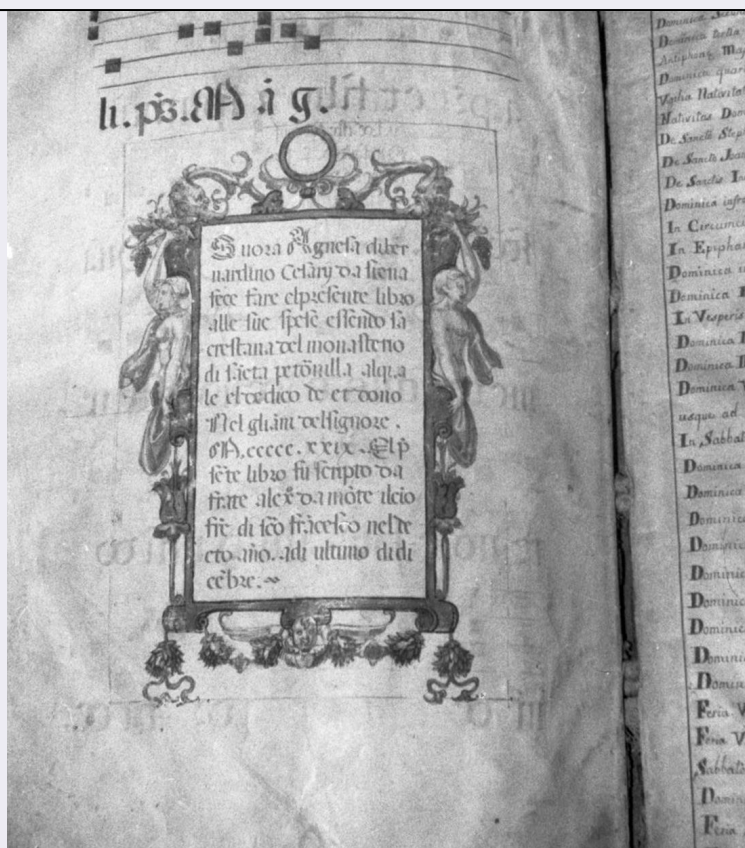 li. ps. M a g.
Suora Agnesa diber
nardino Cesary da siena
fece fare elpresente libro
alle sue spese essendo sa
crestana del monasterio
di sᾱcta petōnilla alqua
le el dedico de et dono
Nel gli ani delsignore.
M.ccccc.xxix. El p̄
sēte libro fu scripto da
frate alex̄o da mōte ilcio
frē di sc̄o frācesco nel de
cto año. adi ultimo di di
cēbre.~
Dominica tertia
Dominica quar
Vigilia Nativitat
Nativitas Dom
De Sancto Step
De Sancto Joan
De Sanctis In
Dominica infra
In Circumci
In Epiphan
Dominica in
Dominica
In Vesperis
Dominica
Dominica
Dominica
usque ad
In Sabbat
Dominica
Dominica
Dominic
Dominic
Dominic
Dominic
Dominic
Dominic
Domin
Feria V
Feria V
Sabbat
Domin
Feria